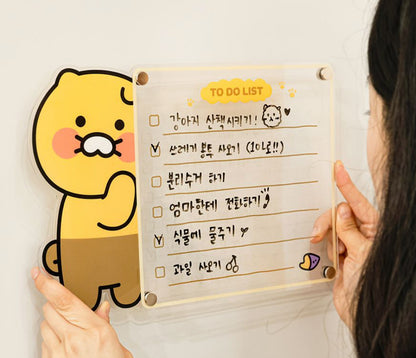 TO DO LIST
강아지 산책시키기!
쓰레기 봉투 사오기 (10L!!)
분리수거 하기
엄마한테 전화하기!
식물에 물주기
과일 사오기